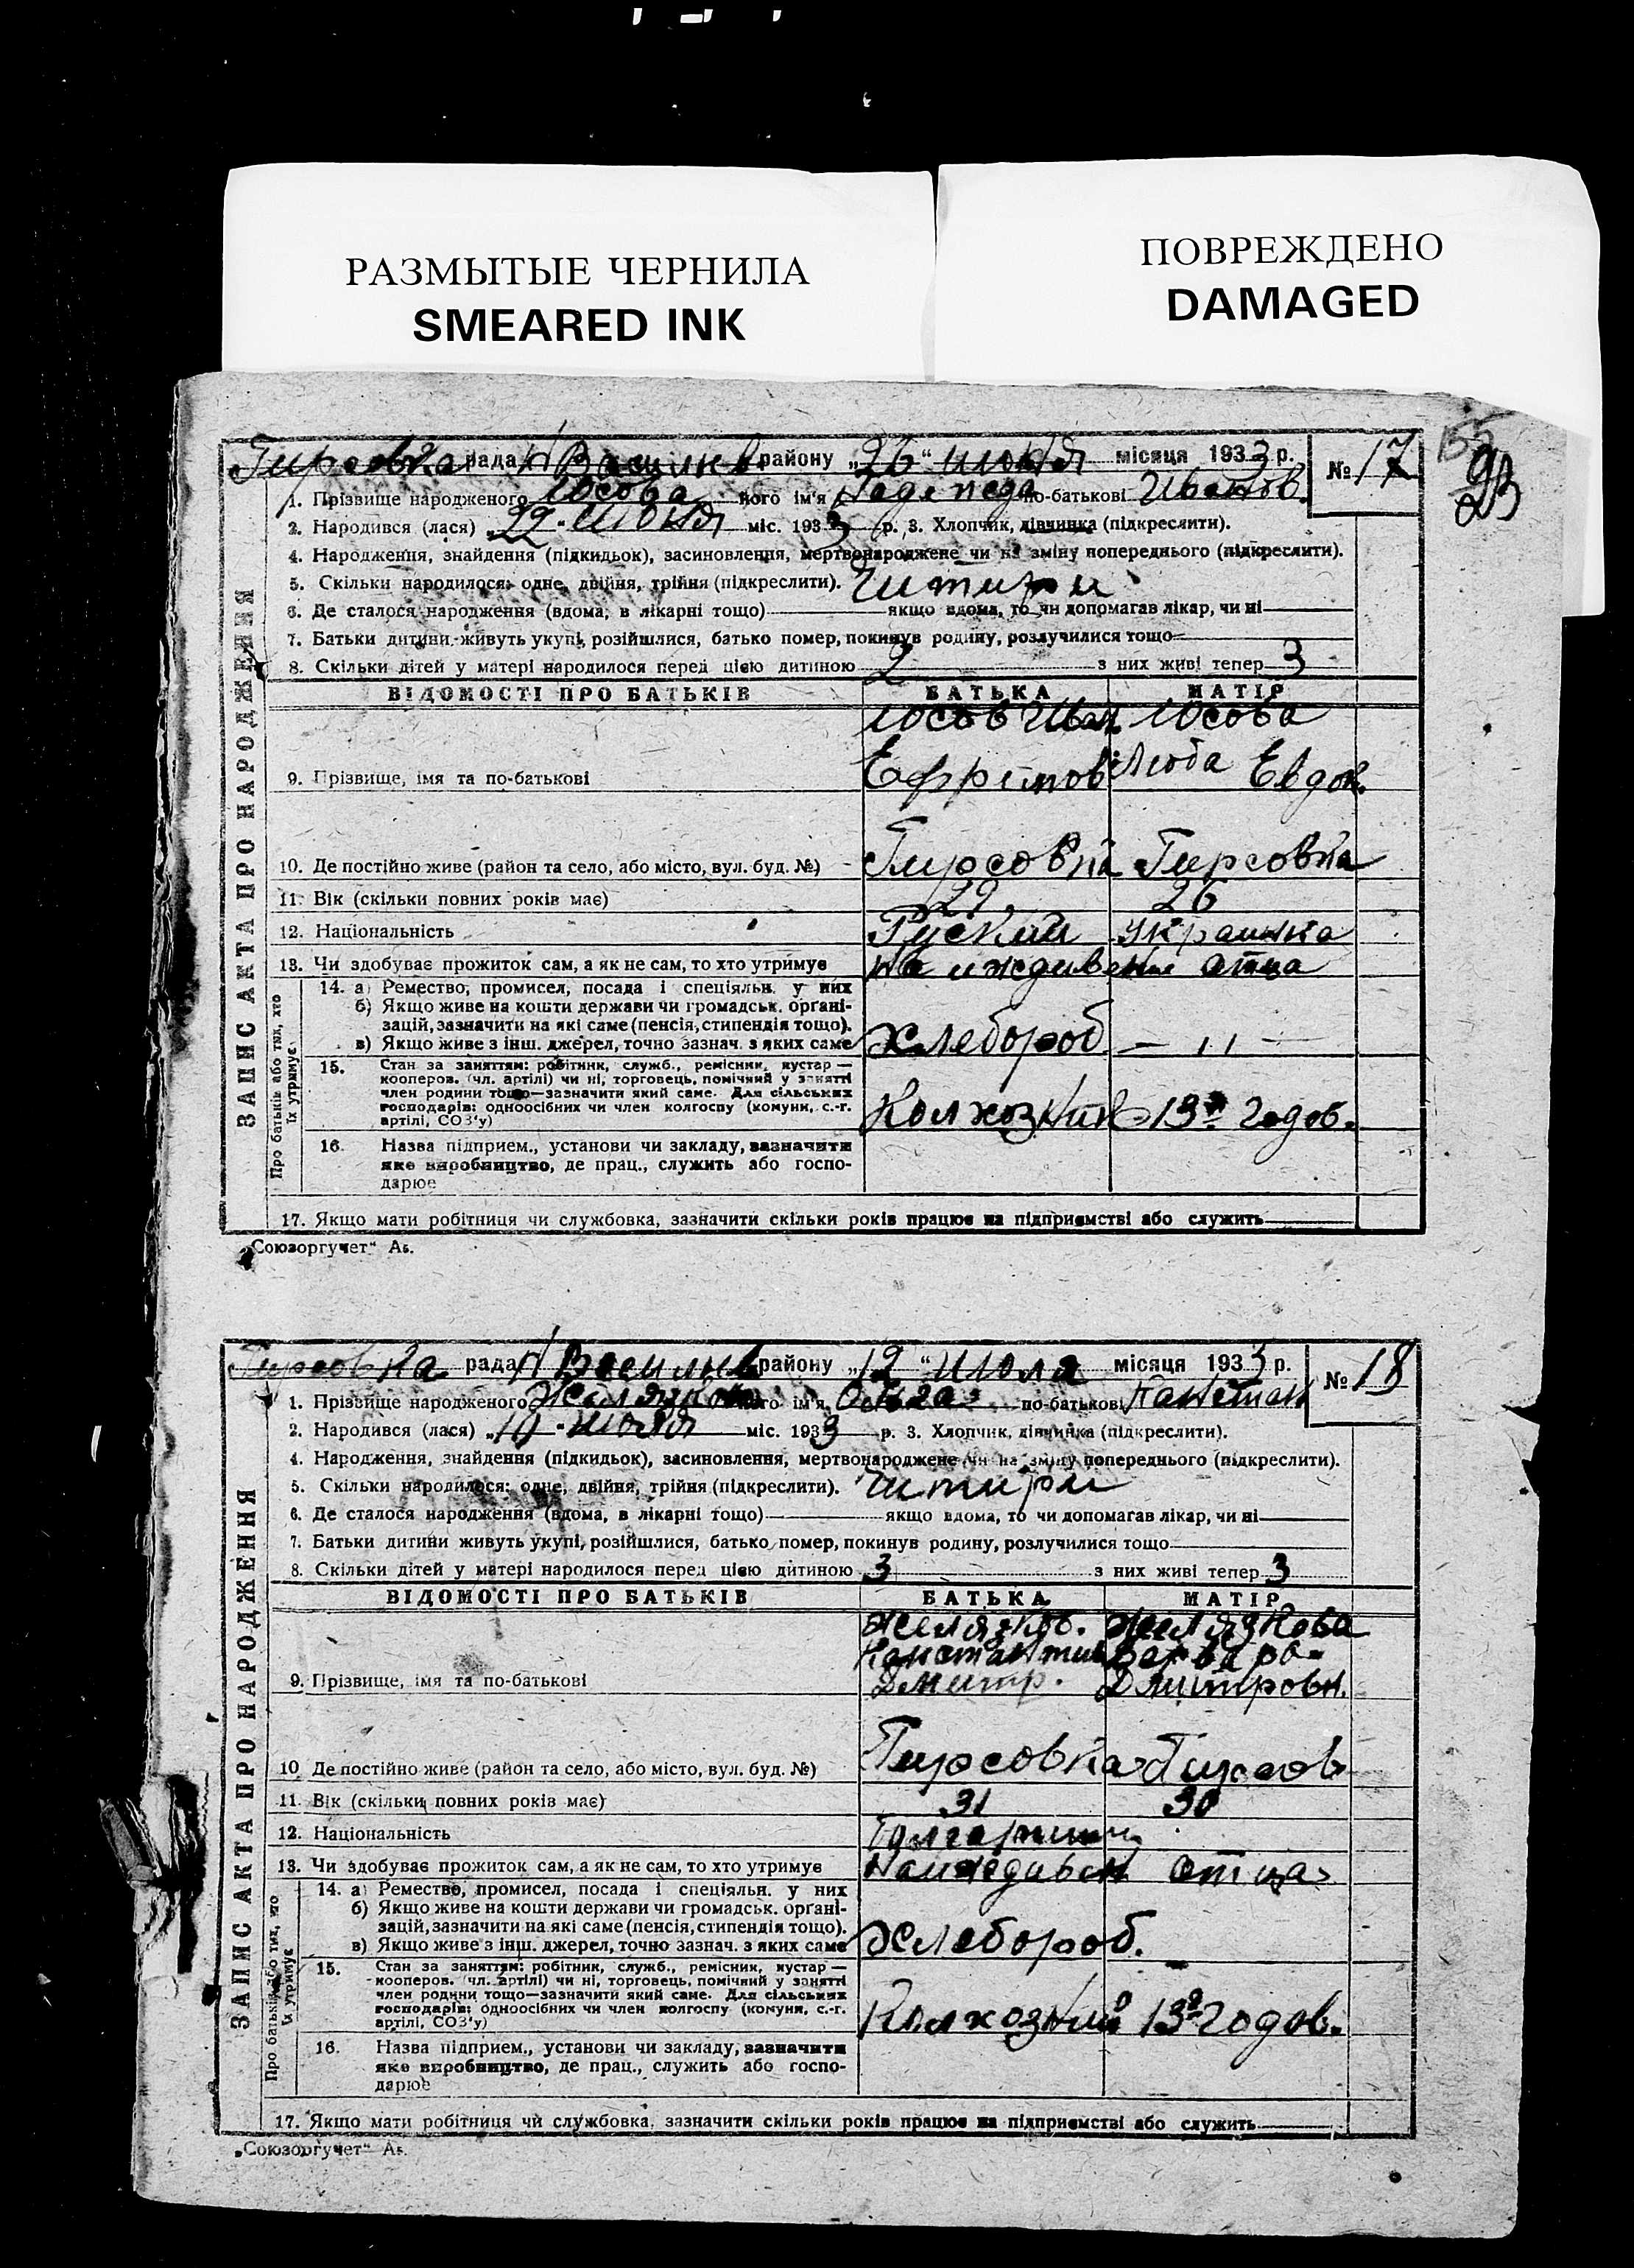 РАЗМЫТЫЕ ЧЕРНИЛА
SMEARED INK
ПОВРЕЖДЕНО
DAMAGED
Гирсовка рада Н Василів району „26“ июня місяця 1933 р. № 17
1. Прізвище народженого Юсова його ім'я Надежда по-батькові Иванов.
2. Народився (лася) „22“ июня міс. 1933 р. 3. Хлопчик, дівчинка (підкреслити).
4. Народження, знайдення (підкидьок), засиновлення, мертвонароджене чи на зміну попереднього (підкреслити).
5. Скільки народилося: одне, двійня, трійня (підкреслити). Читири
6. Де сталося народження (вдома, в лікарні тощо) якщо вдома, то чи допомагав лікар, чи ні
7. Батьки дитини живуть укупі, розійшлися, батько помер, покинув родину, розлучилися тощо
8. Скільки дітей у матері народилося перед цією дитиною 2 з них живі тепер 3
ВІДОМОСТІ ПРО БАТЬКІВ БАТЬКА МАТІР
Юсов Иван Юсова
9. Прізвище, імя та по-батькові Ефрімов Люба Евдок.
10. Де постійно живе (район та село, або місто, вул. буд. №) Гирсовка Гирсовка
11. Вік (скільки повних років має) 29 26
12. Національність Руский Украинка
13. Чи здобуває прожиток сам, а як не сам, то хто утримує На иждивении отца
14. а) Ремество, промисел, посада і спеціяльн. у них
б) Якщо живе на кошти держави чи громадськ. орґані-
зацій, зазначити на які саме (пенсія, стипендія тощо).
в) Якщо живе з інш. джерел, точно зазнач. з яких саме Хлебороб. — ,, —
15. Стан за заняттям: робітник, служб., ремісник, кустар —
кооперов. (чл. артілі) чи ні, торговець, помічний у занятті
член родини тощо—зазначити який саме. Для сільських
господарів: одноосібних чи член колгоспу (комуни, с.-г.
артілі, СОЗ'у) Колхозник 13 годов.
16. Назва підприєм., установи чи закладу, зазначити
яке виробництво, де прац., служить або госпо-
дарює
17. Якщо мати робітниця чи службовка, зазначити скільки років працює на підприємстві або служить
ЗАПИС АКТА ПРО НАРОДЖЕННЯ
Про батьків або тих, хто
їх утримує
„Союзоргучет“ А5.
Гирсовка рада Н Василів району „12“ июля місяця 1933 р. № 18
1. Прізвище народженого його ім'я по-батькові
2. Народився (лася) „10“ июля міс. 1933 р. 3. Хлопчик, дівчинка (підкреслити).
4. Народження, знайдення (підкидьок), засиновлення, мертвонароджене чи на зміну попереднього (підкреслити).
5. Скільки народилося: одне, двійня, трійня (підкреслити). Читири
6. Де сталося народження (вдома, в лікарні тощо) якщо вдома, то чи допомагав лікар, чи ні
7. Батьки дитини живуть укупі, розійшлися, батько помер, покинув родину, розлучилися тощо
8. Скільки дітей у матері народилося перед цією дитиною 3 з них живі тепер 3
ВІДОМОСТІ ПРО БАТЬКІВ БАТЬКА МАТІР
Желязков. Желязкова
Канстантин Варвара
9. Прізвище, імя та по-батькові Дмитр. Дмитровн.
10. Де постійно живе (район та село, або місто, вул. буд. №) Гирсовка Гирсов
11. Вік (скільки повних років має) 31 30
12. Національність
13. Чи здобуває прожиток сам, а як не сам, то хто утримує отца
14. а) Ремество, промисел, посада і спеціяльн. у них
б) Якщо живе на кошти держави чи громадськ. орґані-
зацій, зазначити на які саме (пенсія, стипендія тощо).
в) Якщо живе з інш. джерел, точно зазнач. з яких саме Хлебороб.
15. Стан за заняттям: робітник, служб., ремісник, кустар —
кооперов. (чл. артілі) чи ні, торговець, помічний у занятті
член родини тощо—зазначити який саме. Для сільських
господарів: одноосібних чи член колгоспу (комуни, с.-г.
артілі, СОЗ'у) 13 годов.
16. Назва підприєм., установи чи закладу, зазначити
яке виробництво, де прац., служить або госпо-
дарює
17. Якщо мати робітниця чи службовка, зазначити скільки років працює на підприємстві або служить
ЗАПИС АКТА ПРО НАРОДЖЕННЯ
Про батьків або тих, хто
їх утримує
„Союзоргучет“ А5.